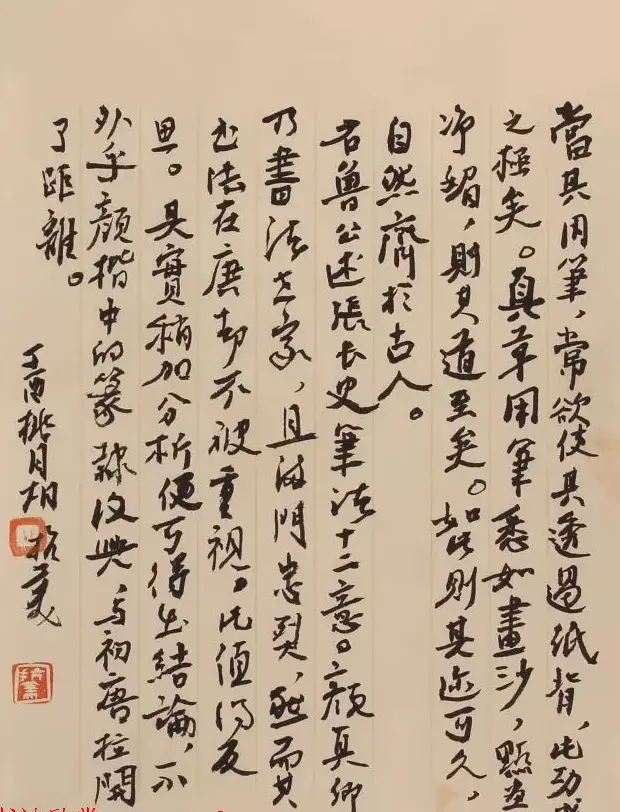 當其用筆，常欲使其透過紙背，此功成
之極矣。真草用筆悉如畫沙，點畫
净媚，則其道至矣。如此則其迹可久，
自然齊於古人。
右魯公述張長史筆法十二意。顏真卿
乃書法大家，且滿門忠烈，然而其
书法在唐却不被重視。此值得反
思。其實稍加分析便可得出結論，不
外乎顏楷中的篆隸復興，与初唐拉開
了距離。
丁酉桃月胡抗美